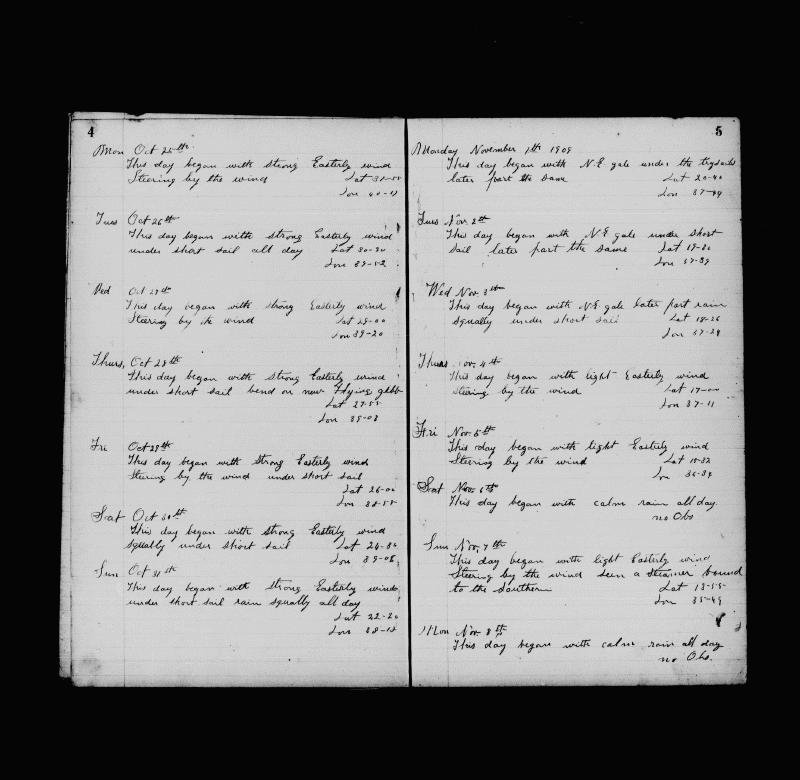 4
Mon Oct 25th
This day began with strong Easterly wind
Steering by the wind Lat
Lon 40-17
Tues Oct 26th
This day began with strong Easterly wind
under short sail all day Lat 30-30
Lon 39-52
Wed Oct 27th
This day began with strong Easterly wind
Steering by the wind Lat 29-00
Lon 39-20
Thurs, Oct 28th
This day began with strong Easterly wind
under short sail bend on new Flying gibb
Lat 27-55
Lon 39-03
Fri Oct 29th
This day began with strong Easterly wind
Steering by the wind under short sail
Lat 26-00
Lon 38-58
Sat Oct 30th
This day began with strong Easterly wind
squally under short sail Lat 24-30
Lon 39-08
Sun Oct 31st
This day began with strong Easterly wind
under short sail rain squally all day
Lat 22-20
Lon 38-18
5
Monday November 1th 1909
This day began with N.E. gale under the trysails
later part the same Lat 20-40
Lon 37-49
Tues Nov. 2th
This day began with N.E gale under short
sail later part the same Lat 19-30
Lon 37-39
Wed Nov. 3th
This day began with N.E gale later part rain
squally under short sail Lat 18-26
Lon 37-29
Thurs Nov. 4th
This day began with light Easterly wind
steering by the wind Lat 17-00
Lon 37-11
Fri Nov. 5th
This day began with light Easterly wind
Steering by the wind Lat 15-32
Lon 36-34
Sat Nov. 6th
This day began with calm rain all day.
no Obs
Sun Nov. 7th
This day began with light Easterly wind
Steering by the wind seen a steamer bound
to the Southern Lat 13-55
Lon 35-49
Mon Nov. 8th
This day began with calm rain all day
no Obs.